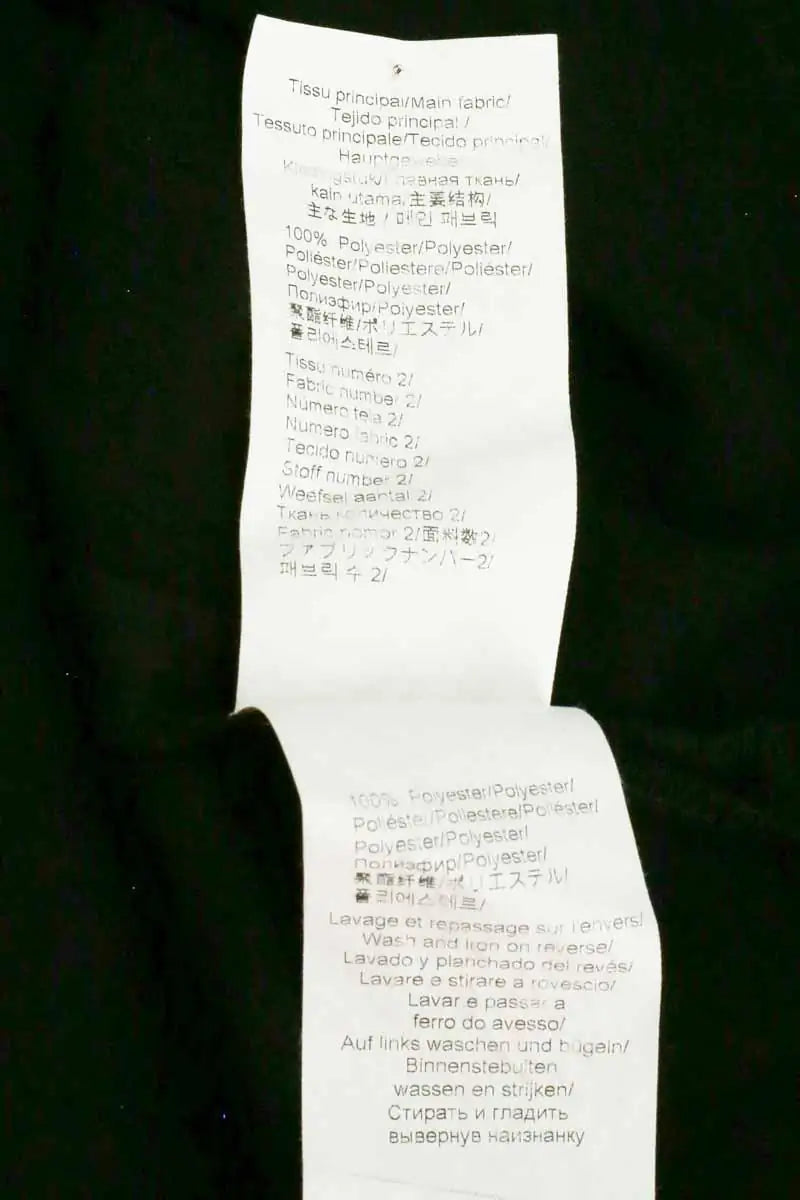 Tissu principal/Main fabric/
Tejido principal /
Tessuto principale/Tecido principal/
Hauptgewebe
главная ткань/
kain utama/主要结构/
主な生地 / 메인 패브릭
100% Polyester/Polyester/
Poliéster/Poliestere/Poliéster/
Polyester/Polyester/
Полиэфир/Polyester/
聚酯纤维/ポリエステル/
폴리에스테르/
Tissu numéro 2/
Fabric number 2/
Número tela 2/
Numero fabric 2/
Tecido número 2/
Stoff number 2/
Weefsel aantal 2/
Ткань количество 2/
Fabric nomor 2/面料数2/
ファブリックナンバー2/
패브릭 수 2/
100% Polyester/Polyester/
Poliéster/Poliestere/Poliéster/
Polyester/Polyester/
Полиэфир/Polyester/
聚酯纤维/ポリエステル/
폴리에스테르/
Lavage et repassage sur l'envers/
Wash and Iron on reverse/
Lavado y planchado del revés/
Lavare e stirare a rovescio/
Lavar e passar a
ferro do avesso/
Auf links waschen und bügeln/
Binnenstebuiten
wassen en strijken/
Стирать и гладить
вывернув наизнанку